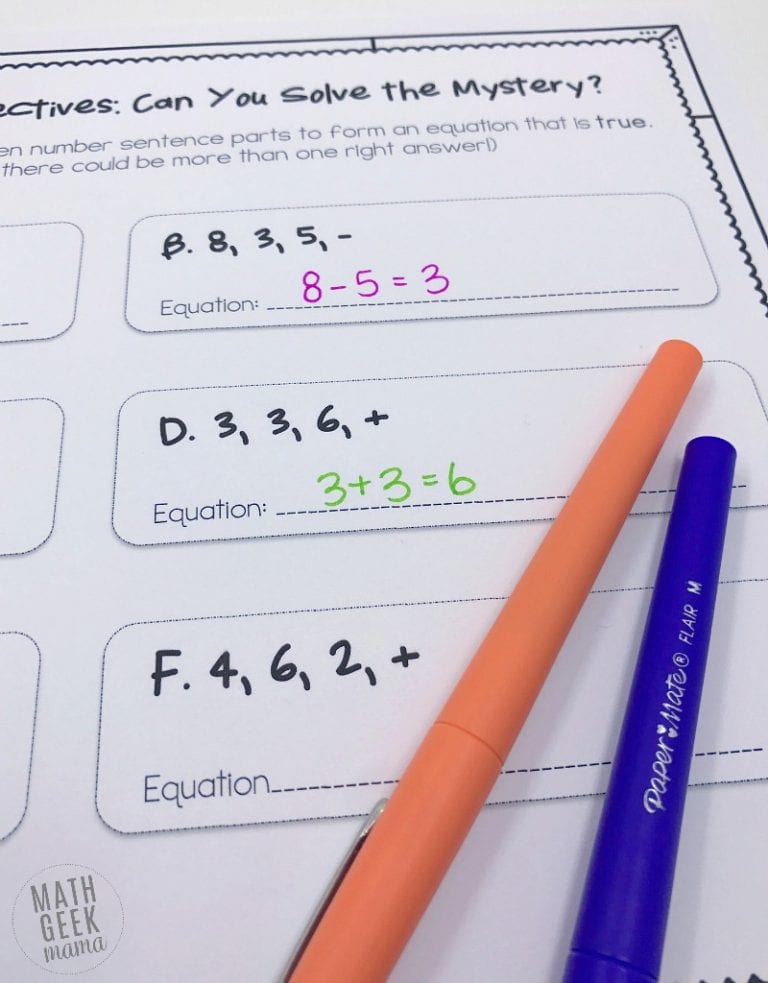 ectives: Can You Solve the Mystery?
en number sentence parts to form an equation that is true.
there could be more than one right answer!)
B. 8, 3, 5, -
Equation: 8 - 5 = 3
D. 3, 3, 6, +
Equation: 3 + 3 = 6
F. 4, 6, 2, +
Equation
Paper Mate® FLAIR M
MATH
GEEK
mama